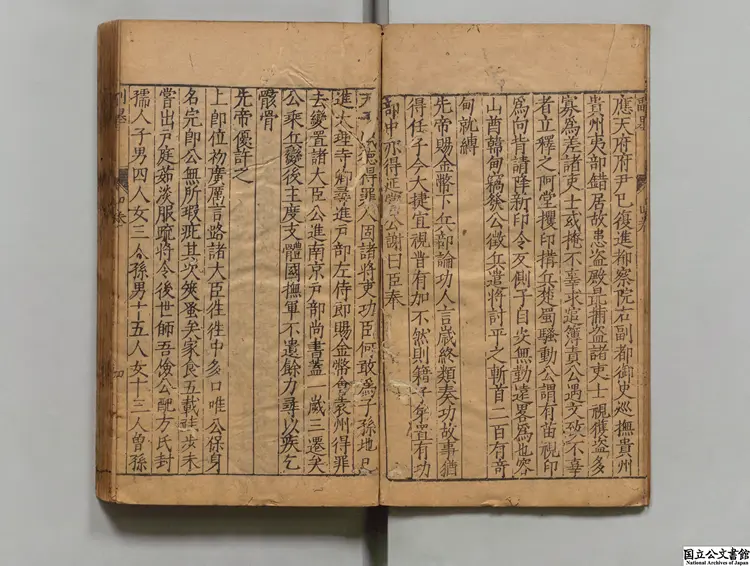 副墨
應天府府尹已復進都察院右副都御史巡撫貴州
貴州夷部錯居故患盜殿最捕盜諸吏士視獲盜多
寡為差諸吏士或捶不辜求當簿責公遇文致不辜
者立釋之阿堂攖印搆兵楚蜀騷動公謂有苗視印
為向背請降新印令反側子自安無勤遠畧為也容
山酋韓甸竊發公徵兵遣將討平之斬首二百有奇
甸就縛
先帝賜金幣下兵部論功人言歲終類奏功故事猶
得任子今大捷宜視昔有加不然則籍子身置有功
部中亦得延賞公謝曰臣奉
天 德得罪人固諸將吏功臣何敢為子孫地已
進大理寺卿尋進戶部左侍郎賜金幣會袁州得罪
去變置諸大臣公進南京戶部尚書蓋一歲三遷矣
公乘兵變後主度支體國撫軍不遺餘力尋以疾乞
骸骨
先帝優許之
上即位初廣厲言路諸大臣往往中多口唯公保身
名完即公無所瑕疵其次幾蚤矣家食五載跬步未
嘗出戶庭茹淡服疏將令後世師吾儉公配方氏封
孺人子男四人女三人孫男十五人女十三人曾孫
国立公文書館
National Archives of Japan